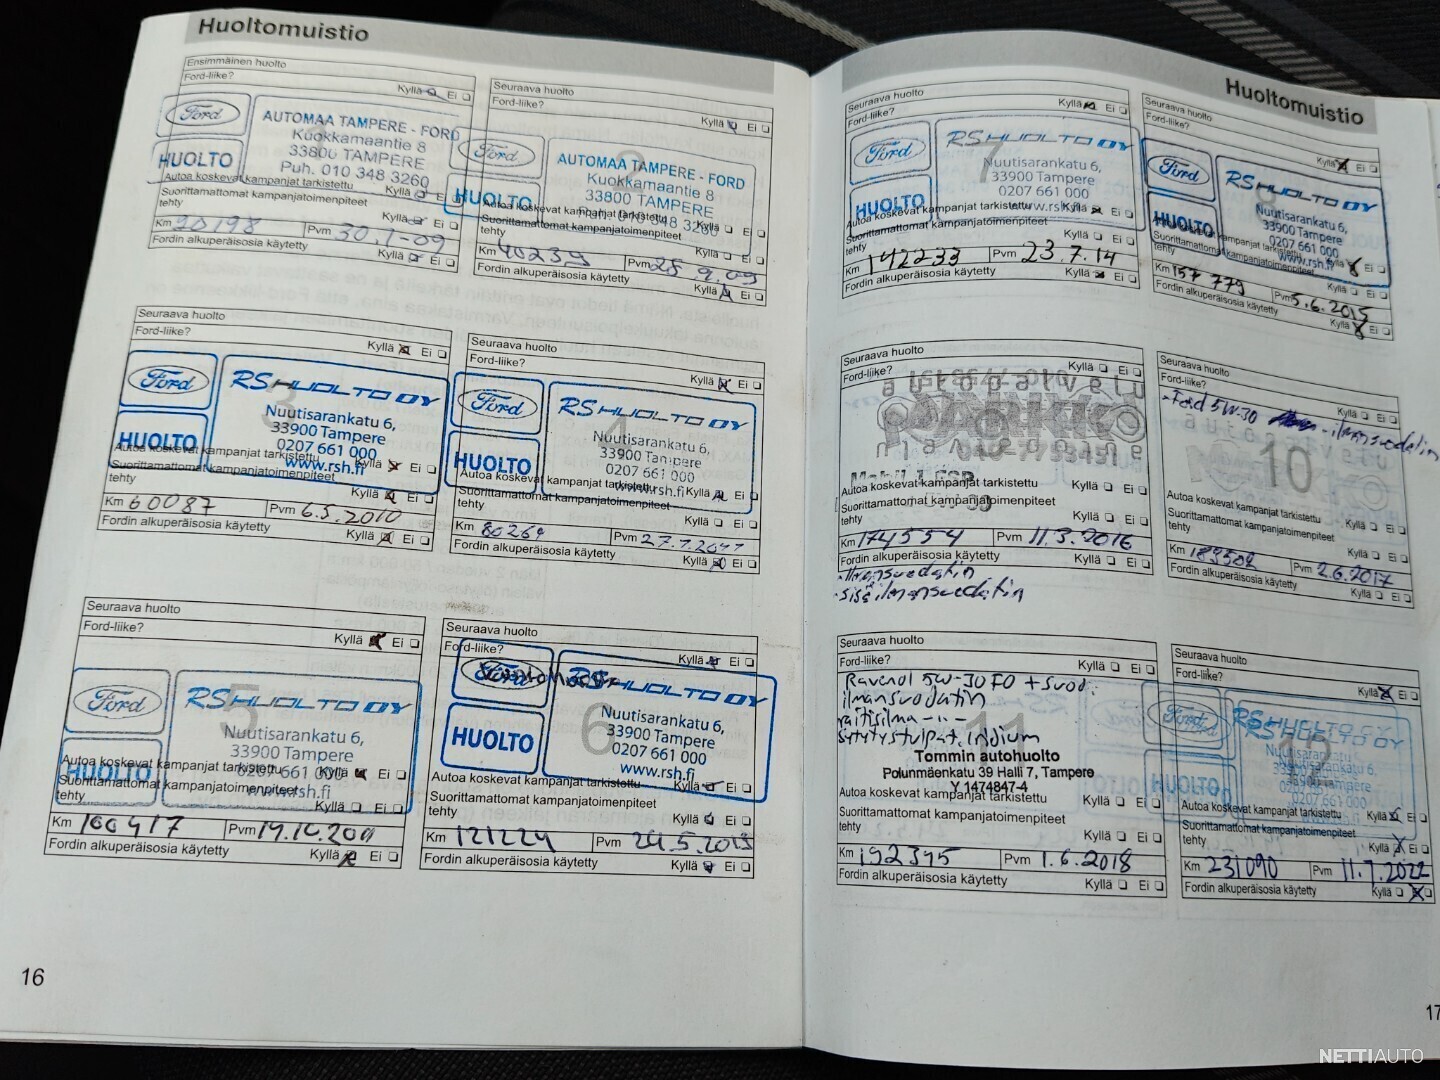 Huoltomuistio
Ensimmäinen huolto
Ford-liike?
Kyllä Ei
Ford
HUOLTO
AUTOMAA TAMPERE - FORD
Kuokkamaantie 8
33800 TAMPERE
Puh. 010 348 3260
Autoa koskevat kampanjat tarkistettu
Kyllä Ei
Suorittamattomat kampanjatoimenpiteet
tehty
Kyllä Ei
Km 20198 Pvm 30.1-09
Fordin alkuperäisosia käytetty
Kyllä Ei
Seuraava huolto
Ford-liike?
Kyllä Ei
2
Ford
HUOLTO
AUTOMAA TAMPERE - FORD
Kuokkamaantie 8
33800 TAMPERE
Puh. 010 348 3260
Autoa koskevat kampanjat tarkistettu
Suorittamattomat kampanjatoimenpiteet
tehty
Kyllä Ei
Km 40239 Pvm 25.9.09
Fordin alkuperäisosia käytetty
Kyllä Ei
Seuraava huolto
Ford-liike?
Kyllä Ei
3
Ford
HUOLTO
RS HUOLTO OY
Nuutisarankatu 6,
33900 Tampere
0207 661 000
www.rsh.fi
Autoa koskevat kampanjat tarkistettu
Kyllä Ei
Suorittamattomat kampanjatoimenpiteet
tehty
Kyllä Ei
Km 60087 Pvm 6.5.2010
Fordin alkuperäisosia käytetty
Kyllä Ei
Seuraava huolto
Ford-liike?
Kyllä Ei
4
Ford
HUOLTO
RS HUOLTO OY
Nuutisarankatu 6,
33900 Tampere
0207 661 000
www.rsh.fi
Autoa koskevat kampanjat tarkistettu
Suorittamattomat kampanjatoimenpiteet
tehty
Kyllä Ei
Km 80264 Pvm
Fordin alkuperäisosia käytetty
Kyllä Ei
Seuraava huolto
Ford-liike?
Kyllä Ei
5
Ford
HUOLTO
RS HUOLTO OY
Nuutisarankatu 6,
33900 Tampere
0207 661 000
www.rsh.fi
Autoa koskevat kampanjat tarkistettu
Kyllä Ei
Suorittamattomat kampanjatoimenpiteet
tehty
Kyllä Ei
Km 100417 Pvm
Fordin alkuperäisosia käytetty
Kyllä Ei
Seuraava huolto
Ford-liike?
Kyllä Ei
6
Ford
HUOLTO
RS HUOLTO OY
Nuutisarankatu 6,
33900 Tampere
0207 661 000
www.rsh.fi
Autoa koskevat kampanjat tarkistettu
Kyllä Ei
Suorittamattomat kampanjatoimenpiteet
tehty
Kyllä Ei
Km 121224 Pvm 24.5.2013
Fordin alkuperäisosia käytetty
Kyllä Ei
16
Huoltomuistio
Seuraava huolto
Ford-liike?
Kyllä Ei
7
Ford
HUOLTO
RS HUOLTO OY
Nuutisarankatu 6,
33900 Tampere
0207 661 000
www.rsh.fi
Autoa koskevat kampanjat tarkistettu
Kyllä Ei
Suorittamattomat kampanjatoimenpiteet
tehty
Kyllä Ei
Km 142233 Pvm 23.7.14
Fordin alkuperäisosia käytetty
Kyllä Ei
Seuraava huolto
Ford-liike?
Kyllä Ei
8
Ford
HUOLTO
RS HUOLTO OY
Nuutisarankatu 6,
33900 Tampere
0207 661 000
www.rsh.fi
Autoa koskevat kampanjat tarkistettu
Kyllä Ei
Suorittamattomat kampanjatoimenpiteet
tehty
Kyllä Ei
Km 157 779 Pvm 5.6.2015
Fordin alkuperäisosia käytetty
Kyllä Ei
Seuraava huolto
Ford-liike?
Kyllä Ei
Autoa koskevat kampanjat tarkistettu
Kyllä Ei
Suorittamattomat kampanjatoimenpiteet
tehty
Kyllä Ei
Km 174554 Pvm 11.3.2016
Fordin alkuperäisosia käytetty
Kyllä Ei
-ilmansuodatin
-sisäilmansuodatin
Seuraava huolto
Ford-liike?
Kyllä Ei
-Ford 5W-30 -ilmansuodatin
10
Autoa koskevat kampanjat tarkistettu
Kyllä Ei
Suorittamattomat kampanjatoimenpiteet
tehty
Kyllä Ei
Km 183502 Pvm 2.6.2017
Fordin alkuperäisosia käytetty
Kyllä Ei
Seuraava huolto
Ford-liike?
Kyllä Ei
11
Ravenol 5W-30 FO + suod.
ilmansuodatin
raitisilma -"-
sytytystulpat, iridium
Tommin autohuolto
Polunmäenkatu 39 Halli 7, Tampere
Y 1474847-4
Autoa koskevat kampanjat tarkistettu
Kyllä Ei
Suorittamattomat kampanjatoimenpiteet
tehty
Kyllä Ei
Km 192395 Pvm 1.6.2018
Fordin alkuperäisosia käytetty
Kyllä Ei
Seuraava huolto
Ford-liike?
Kyllä Ei
12
Ford
HUOLTO
RS HUOLTO OY
Nuutisarankatu 6,
33900 Tampere
0207 661 000
www.rsh.fi
Autoa koskevat kampanjat tarkistettu
Kyllä Ei
Suorittamattomat kampanjatoimenpiteet
tehty
Kyllä Ei
Km 231090 Pvm 11.7.2022
Fordin alkuperäisosia käytetty
Kyllä Ei
17
NETTIAUTO